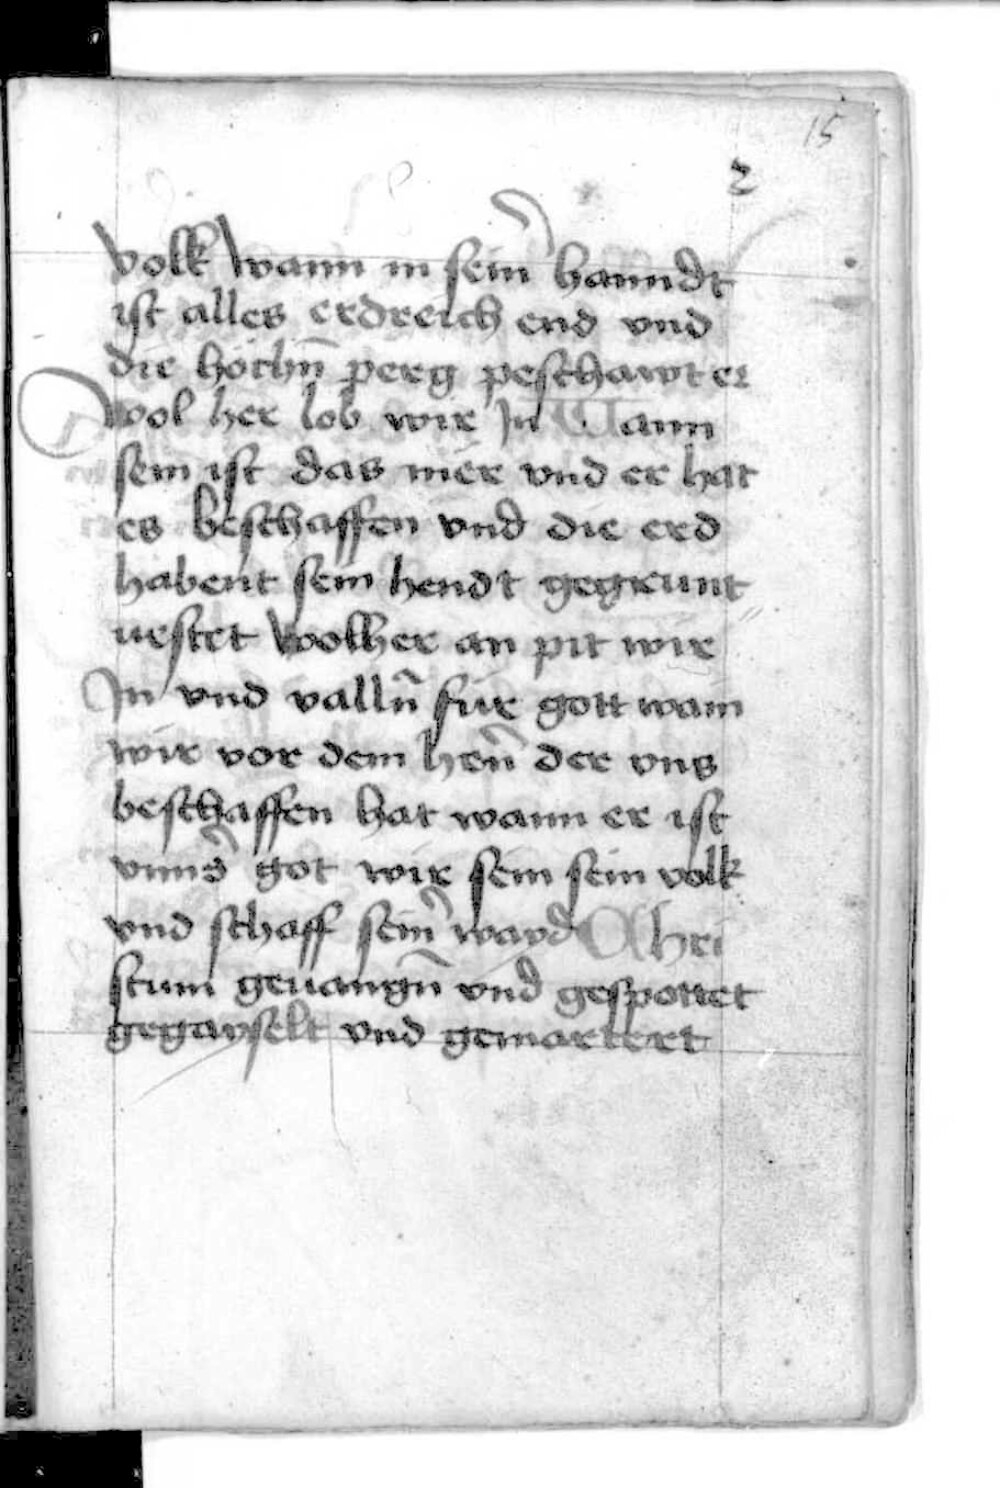 15
2
volk wann in sein̄ hanndt
ist alles erdreich end vnd
die höchn̄ perg peschawt er
Wol her lob wir Jn Wann
sein ist das mer vnd er hat
es beschaffen vnd die erd
habent sein hendt gegruntt
uestet Wolher an pit wir
Jn vnd valln̄ für gott wain
wir vor dem hern̄ der vns
beschaffen hat wann er ist
vnns̄ got wir sein sein volk
vnd schaff sein̄ wayd Chri
stum geuangn̄ vnd gespottet
gegayselt vnd gemartert